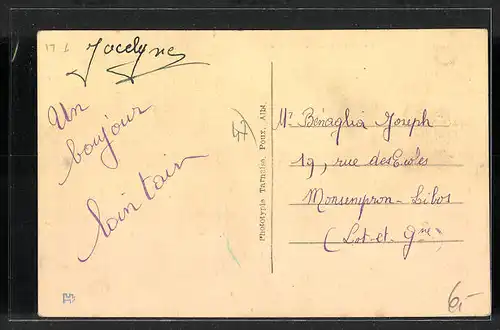 Jocelyne
Un
bonjour
lointain
47
Phototypie Tarnaise, Poux, Albi
Mr Bénaglia Joseph
19, rue des Ecoles
Monsempron-Libos
(Lot-et-Gne
6,-